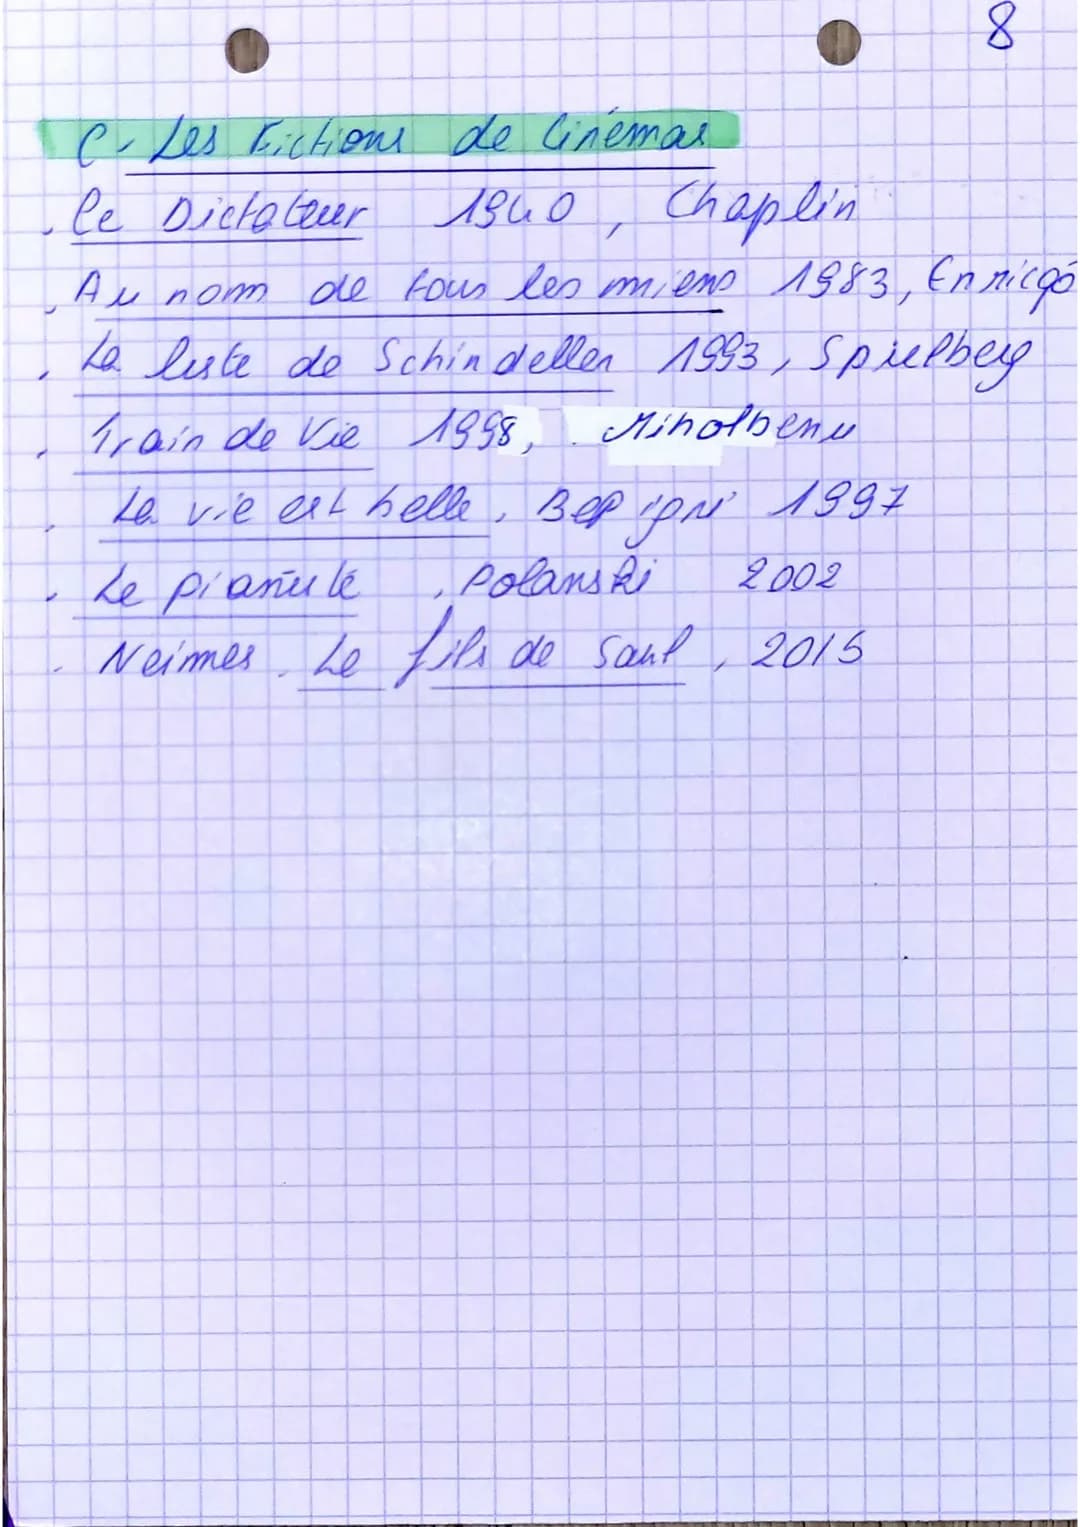 8
C- Les Fictions de Cinémas
. Le Dictateur 1940, Chaplin
. Au nom de tous les miens 1983, Enricgo
. La liste de Schindeller 1993, Spielberg
. Train de Vie 1998, . Miholbenu
. La vie est belle, Bepigni 1997
. Le pianiste, Polanski 2002
. Neimes, Le fils de Saul, 2015